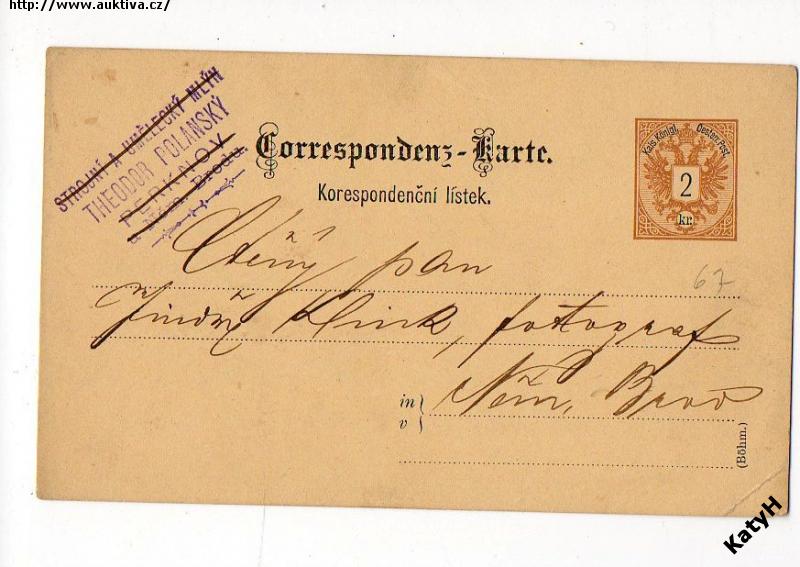 http://www.auktiva.cz/
STROJNÝ A UMĚLECKÝ MLÝN
THEODOR POLANSKÝ
PERKNOV
u Něm. Brodu.
Correspondenz-Karte.
Korespondenční lístek.
Kais. Königl. Oesterr. Post.
2
kr.
Ctěný pan
67
Jindř. Klink, fotograf
in
v
Něm. Brod
(Böhm.)
KatyH